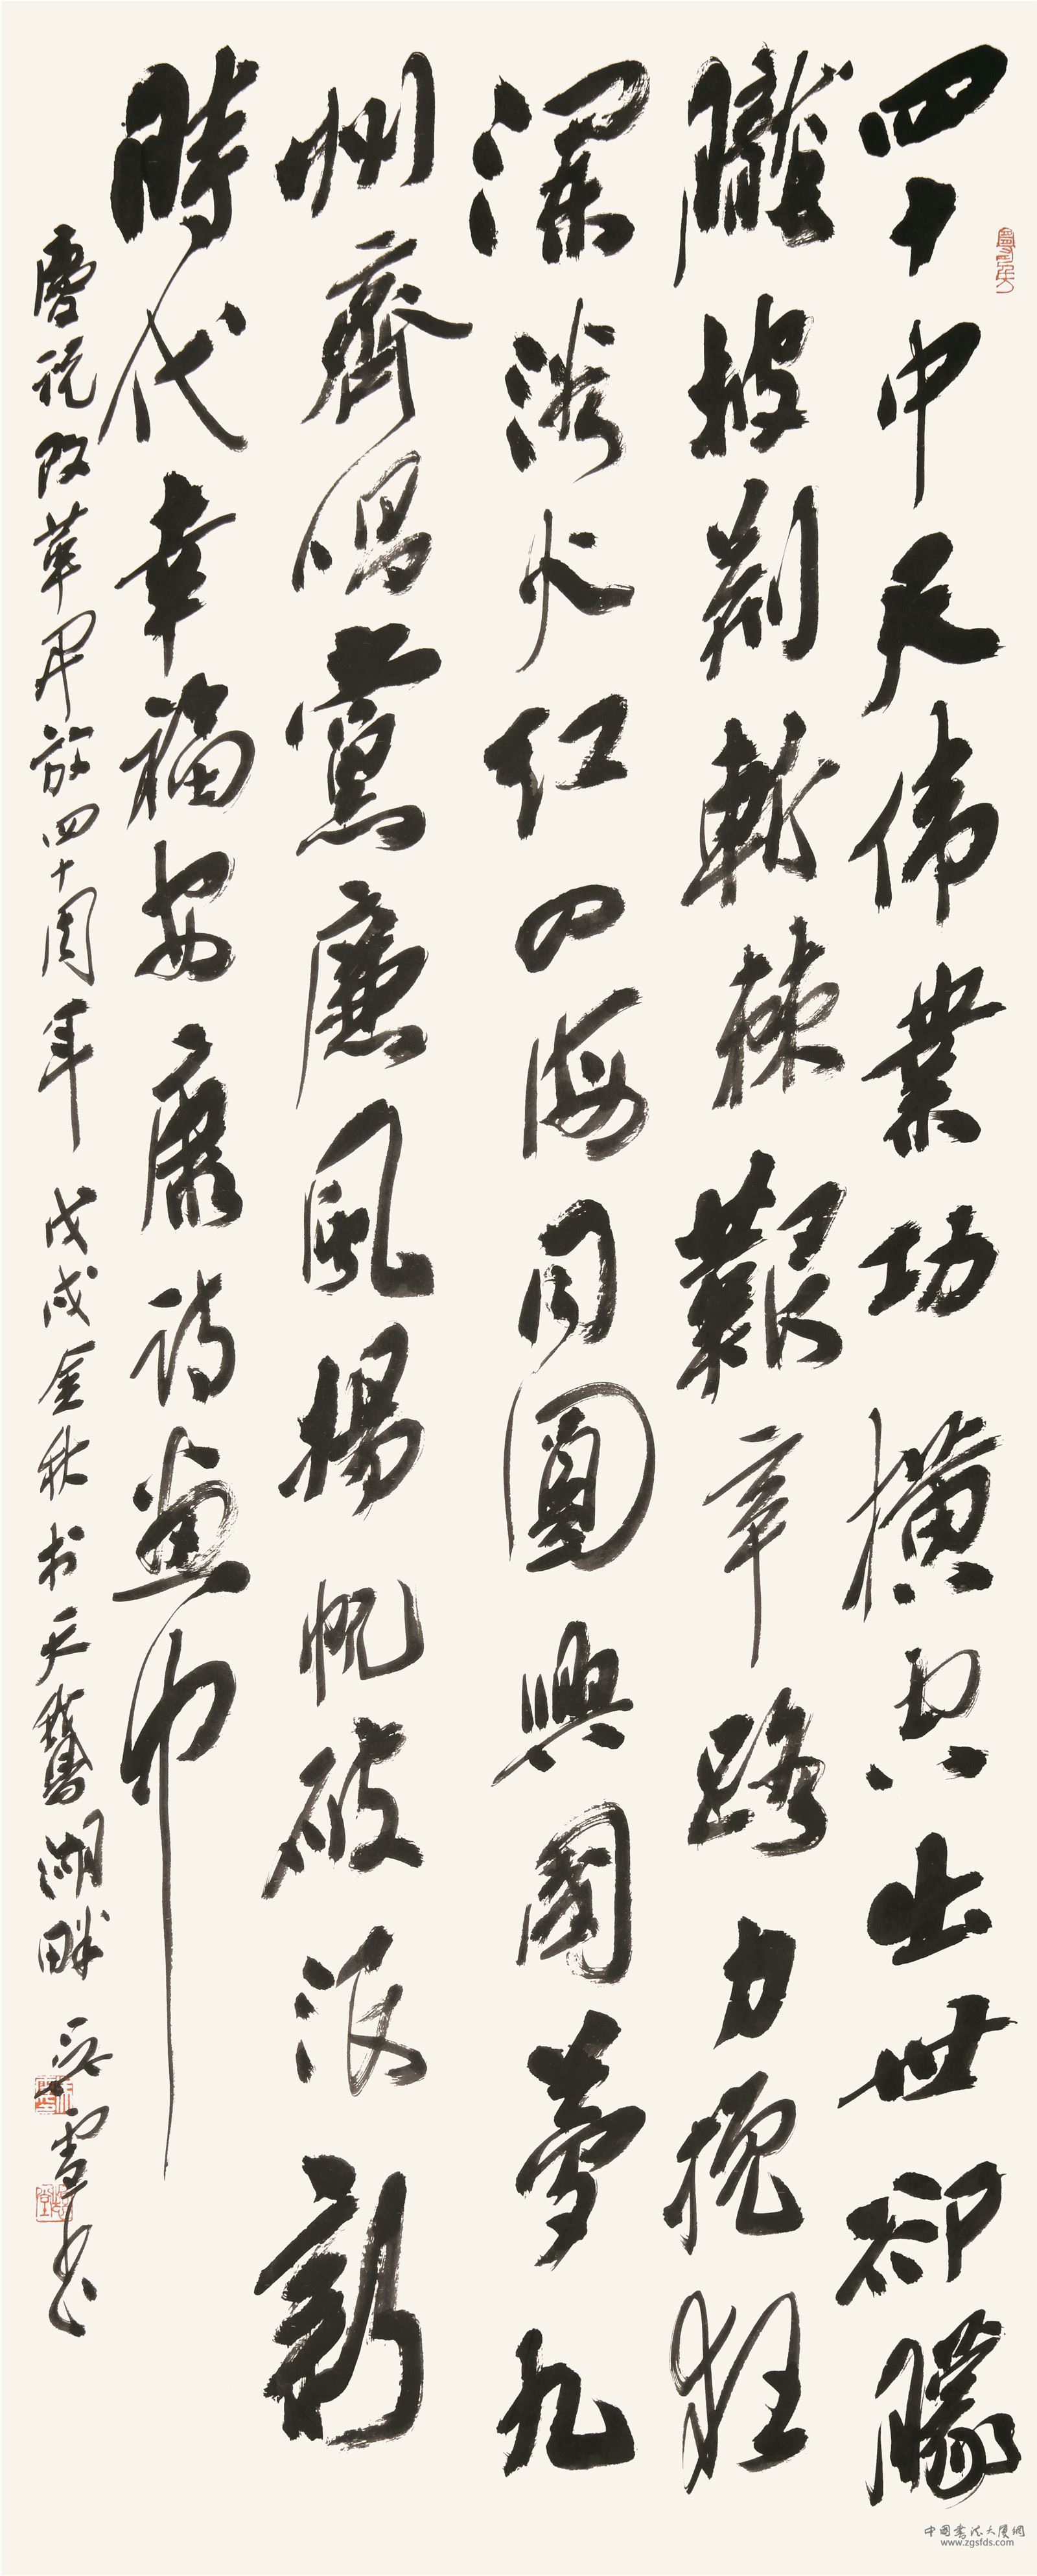 四十中天偉業功橫空出世卻朦
朧披荊斬棘艱辛路力挽狂
瀾火紅四海同圓興國夢九
州齊唱黨廉風揚帆破浪新
時代幸福安康詩畫中
慶祝改革開放四十周年 戊戌金秋於天鵝湖畔 吴雪書
中國書法大廈網
www.zgsfds.com